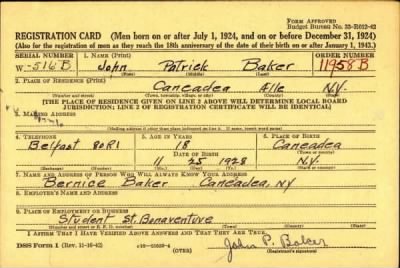 FORM APPROVED
Budget Bureau No. 33-R012-42
REGISTRATION CARD (Men born on or after July 1, 1924, and on or before December 31, 1924)
(Also for the registration of men as they reach the 18th anniversary of the date of their birth on or after January 1, 1943.)
SERIAL NUMBER 1. NAME (Print) ORDER NUMBER
W-516B John Patrick Baker 11958B
(First) (Middle) (Last)
2. PLACE OF RESIDENCE (Print)
Caneadea Alle N.Y.
(Number and street) (Town, township, village, or city) (County) (State)
[THE PLACE OF RESIDENCE GIVEN ON LINE 2 ABOVE WILL DETERMINE LOCAL BOARD
JURISDICTION; LINE 2 OF REGISTRATION CERTIFICATE WILL BE IDENTICAL]
3. MAILING ADDRESS
(Mailing address if other than place indicated on line 2. If same, insert word same)
4. TELEPHONE 5. AGE IN YEARS 6. PLACE OF BIRTH
Belfast 80R1 18 Caneadea
DATE OF BIRTH (Town or county)
11 25 1928 N.Y.
(Mo.) (Day) (Yr.) (State or country)
7. NAME AND ADDRESS OF PERSON WHO WILL ALWAYS KNOW YOUR ADDRESS
Bernice Baker Caneadea, NY
8. EMPLOYER'S NAME AND ADDRESS
9. PLACE OF EMPLOYMENT OR BUSINESS
Student St. Bonaventure
(Number and street or R. F. D. number) (Town) (County) (State)
I AFFIRM THAT I HAVE VERIFIED ABOVE ANSWERS AND THAT THEY ARE TRUE.
John P. Baker
DSS Form 1 (Rev. 11-16-42) (Registrant's signature)